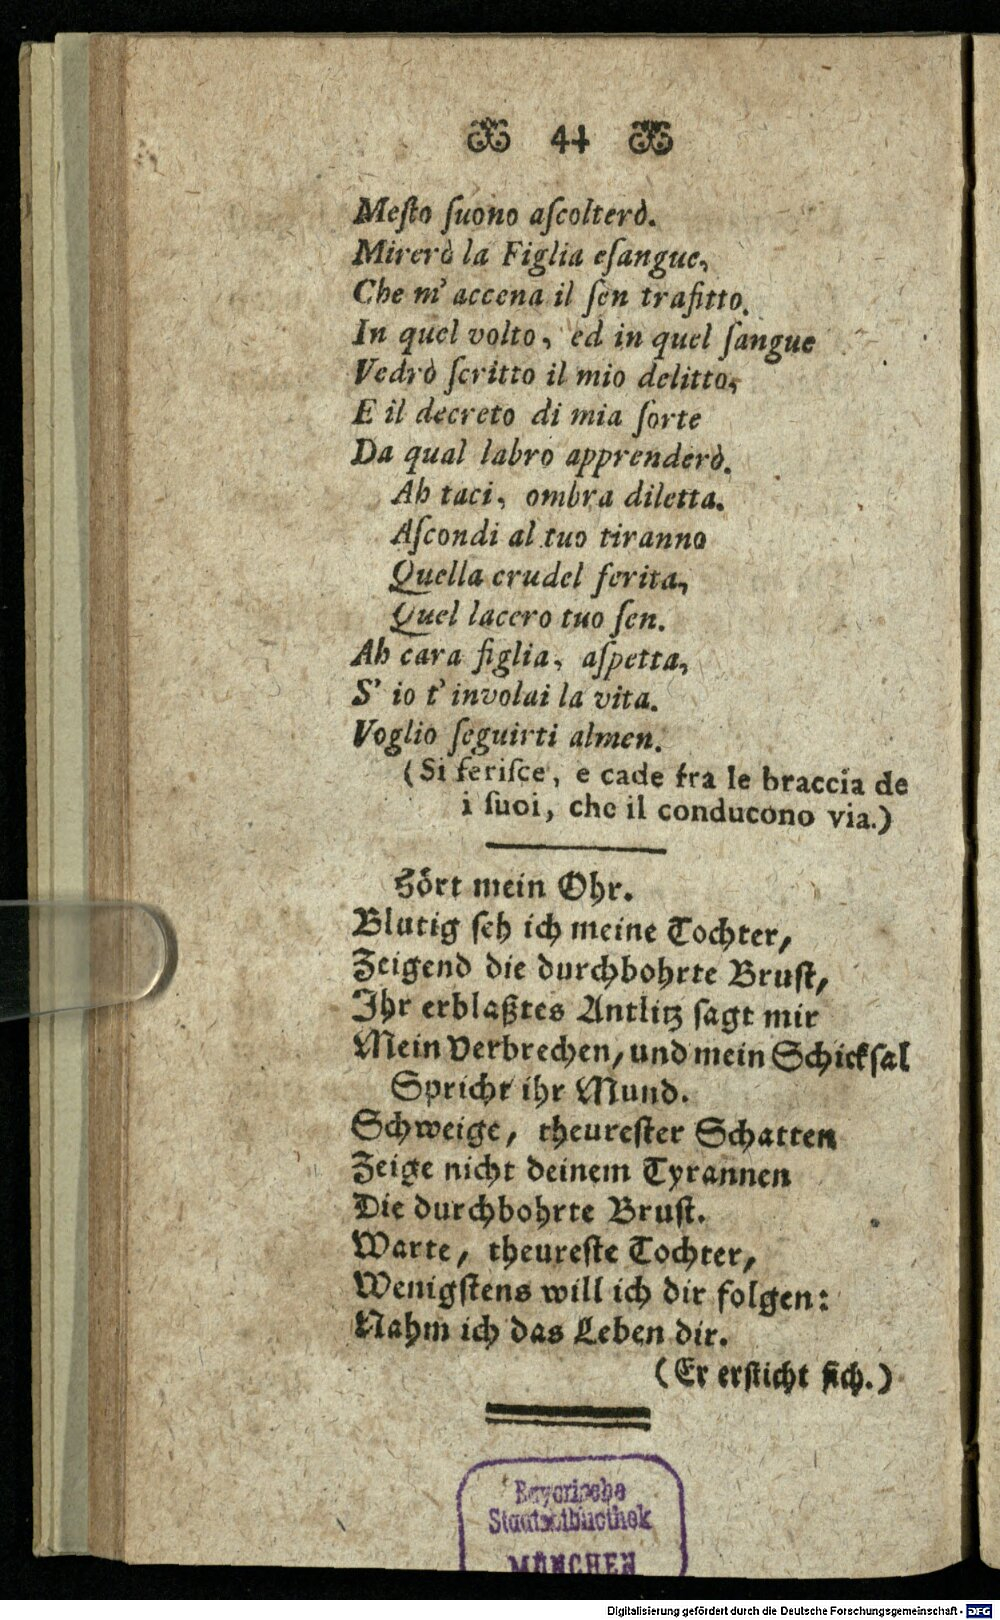 44
Meſto ſuono aſcolterò.
Mirerò la Figlia eſangue,
Che m' accena il ſen trafitto.
In quel volto, ed in quel ſangue
Vedrò ſcritto il mio delitto,
E il decreto di mia ſorte
Da qual labro apprenderò.
Ah taci, ombra diletta.
Aſcondi al tuo tiranno
Quella crudel ferita,
Quel lacero tuo ſen.
Ah cara figlia, aſpetta,
S' io t' involai la vita.
Voglio ſeguirti almen.
(Si feriſce, e cade fra le braccia de
i ſuoi, che il conducono via.)
Hört mein Ohr.
Blutig ſeh ich meine Tochter,
Zeigend die durchbohrte Bruſt,
Ihr erblaßtes Antlitz ſagt mir
Mein Verbrechen, und mein Schickſal
Spricht ihr Mund.
Schweige, theureſter Schatten
Zeige nicht deinem Tyrannen
Die durchbohrte Bruſt.
Warte, theureſte Tochter,
Wenigſtens will ich dir folgen:
Nahm ich das Leben dir.
(Er erſticht ſich.)
Bayerische
Staatsbibliothek
MÜNCHEN
Digitalisierung gefördert durch die Deutsche Forschungsgemeinschaft - DFG